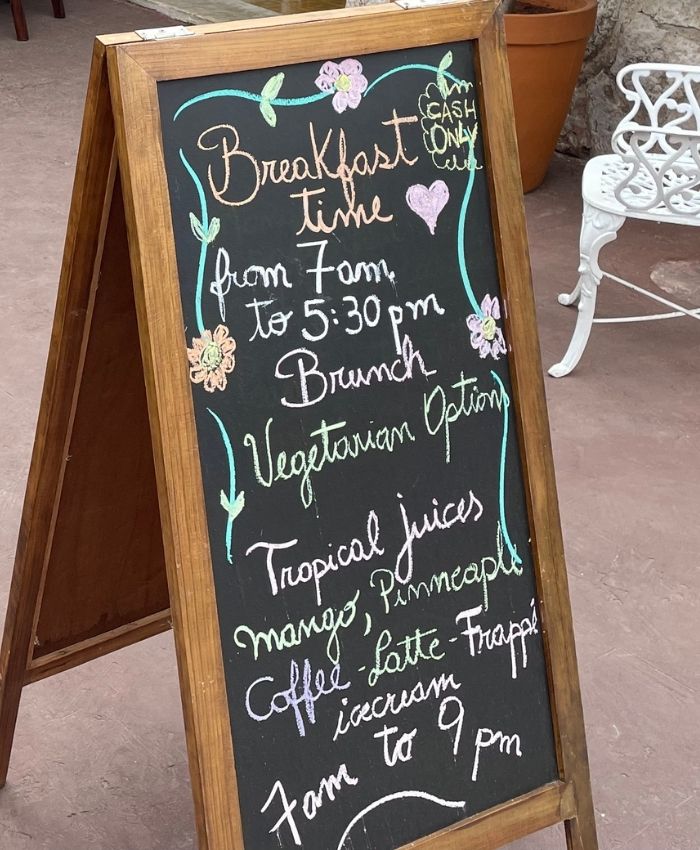 CASH
ONLY
Breakfast
time
from 7am
to 5:30 pm
Brunch
Vegetarian Options
Tropical juices
mango, Pinneaple
Coffee - Latte - Frappé
icecream
7am to 9 pm